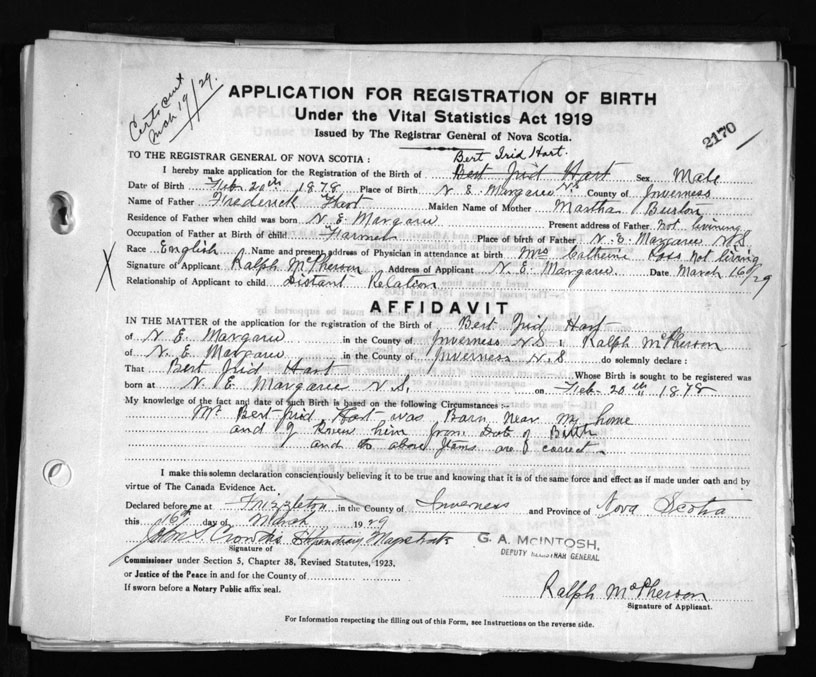 Certs sent
Mch 19/29.
APPLICATION FOR REGISTRATION OF BIRTH
Under the Vital Statistics Act 1919
Issued by The Registrar General of Nova Scotia.
2170
TO THE REGISTRAR GENERAL OF NOVA SCOTIA :
Bert Hart.
I hereby make application for the Registration of the Birth of Bert Hart Sex Male
Date of Birth Feb. 20th 1878 Place of Birth N E Margaree N.S County of Inverness
Name of Father Frederick Hart Maiden Name of Mother Martha
Residence of Father when child was born N. E Margaree Present address of Father Not
Occupation of Father at Birth of child Farmer Place of birth of Father N. E. Margaree N.S.
Race English Name and present address of Physician in attendance at birth Mrs Catherine Ross not living
Signature of Applicant Ralph McPherson Address of Applicant N. E Margaree Date March 16/29
X
Relationship of Applicant to child Distant Relation
AFFIDAVIT
IN THE MATTER of the application for the registration of the Birth of Bert Hart
of N. E. Margaree in the County of Inverness N.S I Ralph McPherson
of N. E Margaree in the County of Inverness N.S do solemnly declare :
That Bert Hart Whose Birth is sought to be registered was
born at N. E Margaree N.S. on Feb. 20th 1878
My knowledge of the fact and date of such Birth is based on the following Circumstances :—
Mr Bert Hart was Born Near My home
and I him from Date of Birth
and the above Items are correct
I make this solemn declaration conscientiously believing it to be true and knowing that it is of the same force and effect as if made under oath and by
virtue of The Canada Evidence Act.
Declared before me at Frizzleton in the County of Inverness and Province of Nova Scotia
this 16th day of March 1929
Stipendiary Magistrate
G. A. McINTOSH,
DEPUTY REGISTRAR GENERAL
Signature of
Commissioner under Section 5, Chapter 38, Revised Statutes, 1923.
or Justice of the Peace in and for the County of
If sworn before a Notary Public affix seal.
Ralph McPherson
Signature of Applicant.
For Information respecting the filling out of this Form, see Instructions on the reverse side.